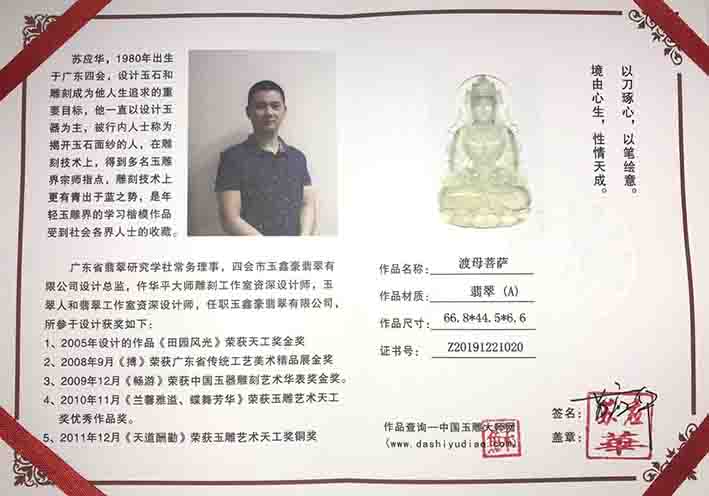 苏应华，1980年出生
于广东四会，设计玉石和
雕刻成为他人生追求的重
要目标，他一直以设计玉
器为主，被行内人士称为
揭开玉石面纱的人，在雕
刻技术上，得到多名玉雕
界宗师指点，雕刻技术上
更有青出于蓝之势，是年
轻玉雕界的学习楷模作品
受到社会各界人士的收藏。
广东省翡翠研究学社常务理事，四会市玉鑫豪翡翠有
限公司设计总监，仵华平大师雕刻工作室资深设计师，玉
翠人和翡翠工作室资深设计师，任职玉鑫豪翡翠有限公司，
所参于设计获奖如下：
1、2005年设计的作品《田园风光》荣获天工奖金奖
2、2008年9月《搏》荣获广东省传统工艺美术精品展金奖
3、2009年12月《畅游》荣获中国玉器雕刻艺术华表奖金奖。
4、2010年11月《兰馨雅谥、蝶舞芳华》荣获玉雕艺术天工
奖优秀作品奖。
5、2011年12月《天道酬勤》荣获玉雕艺术天工奖铜奖
以刀琢心，以笔绘意。
境由心生，性情天成。
作品名称：渡母菩萨
作品材质：翡翠 (A)
作品尺寸：66.8*44.5*6.6
证书号：Z20191221020
作品查询—中国玉雕大师网
(www.dashiyudiao.com)
签名：
盖章：
蘇
華